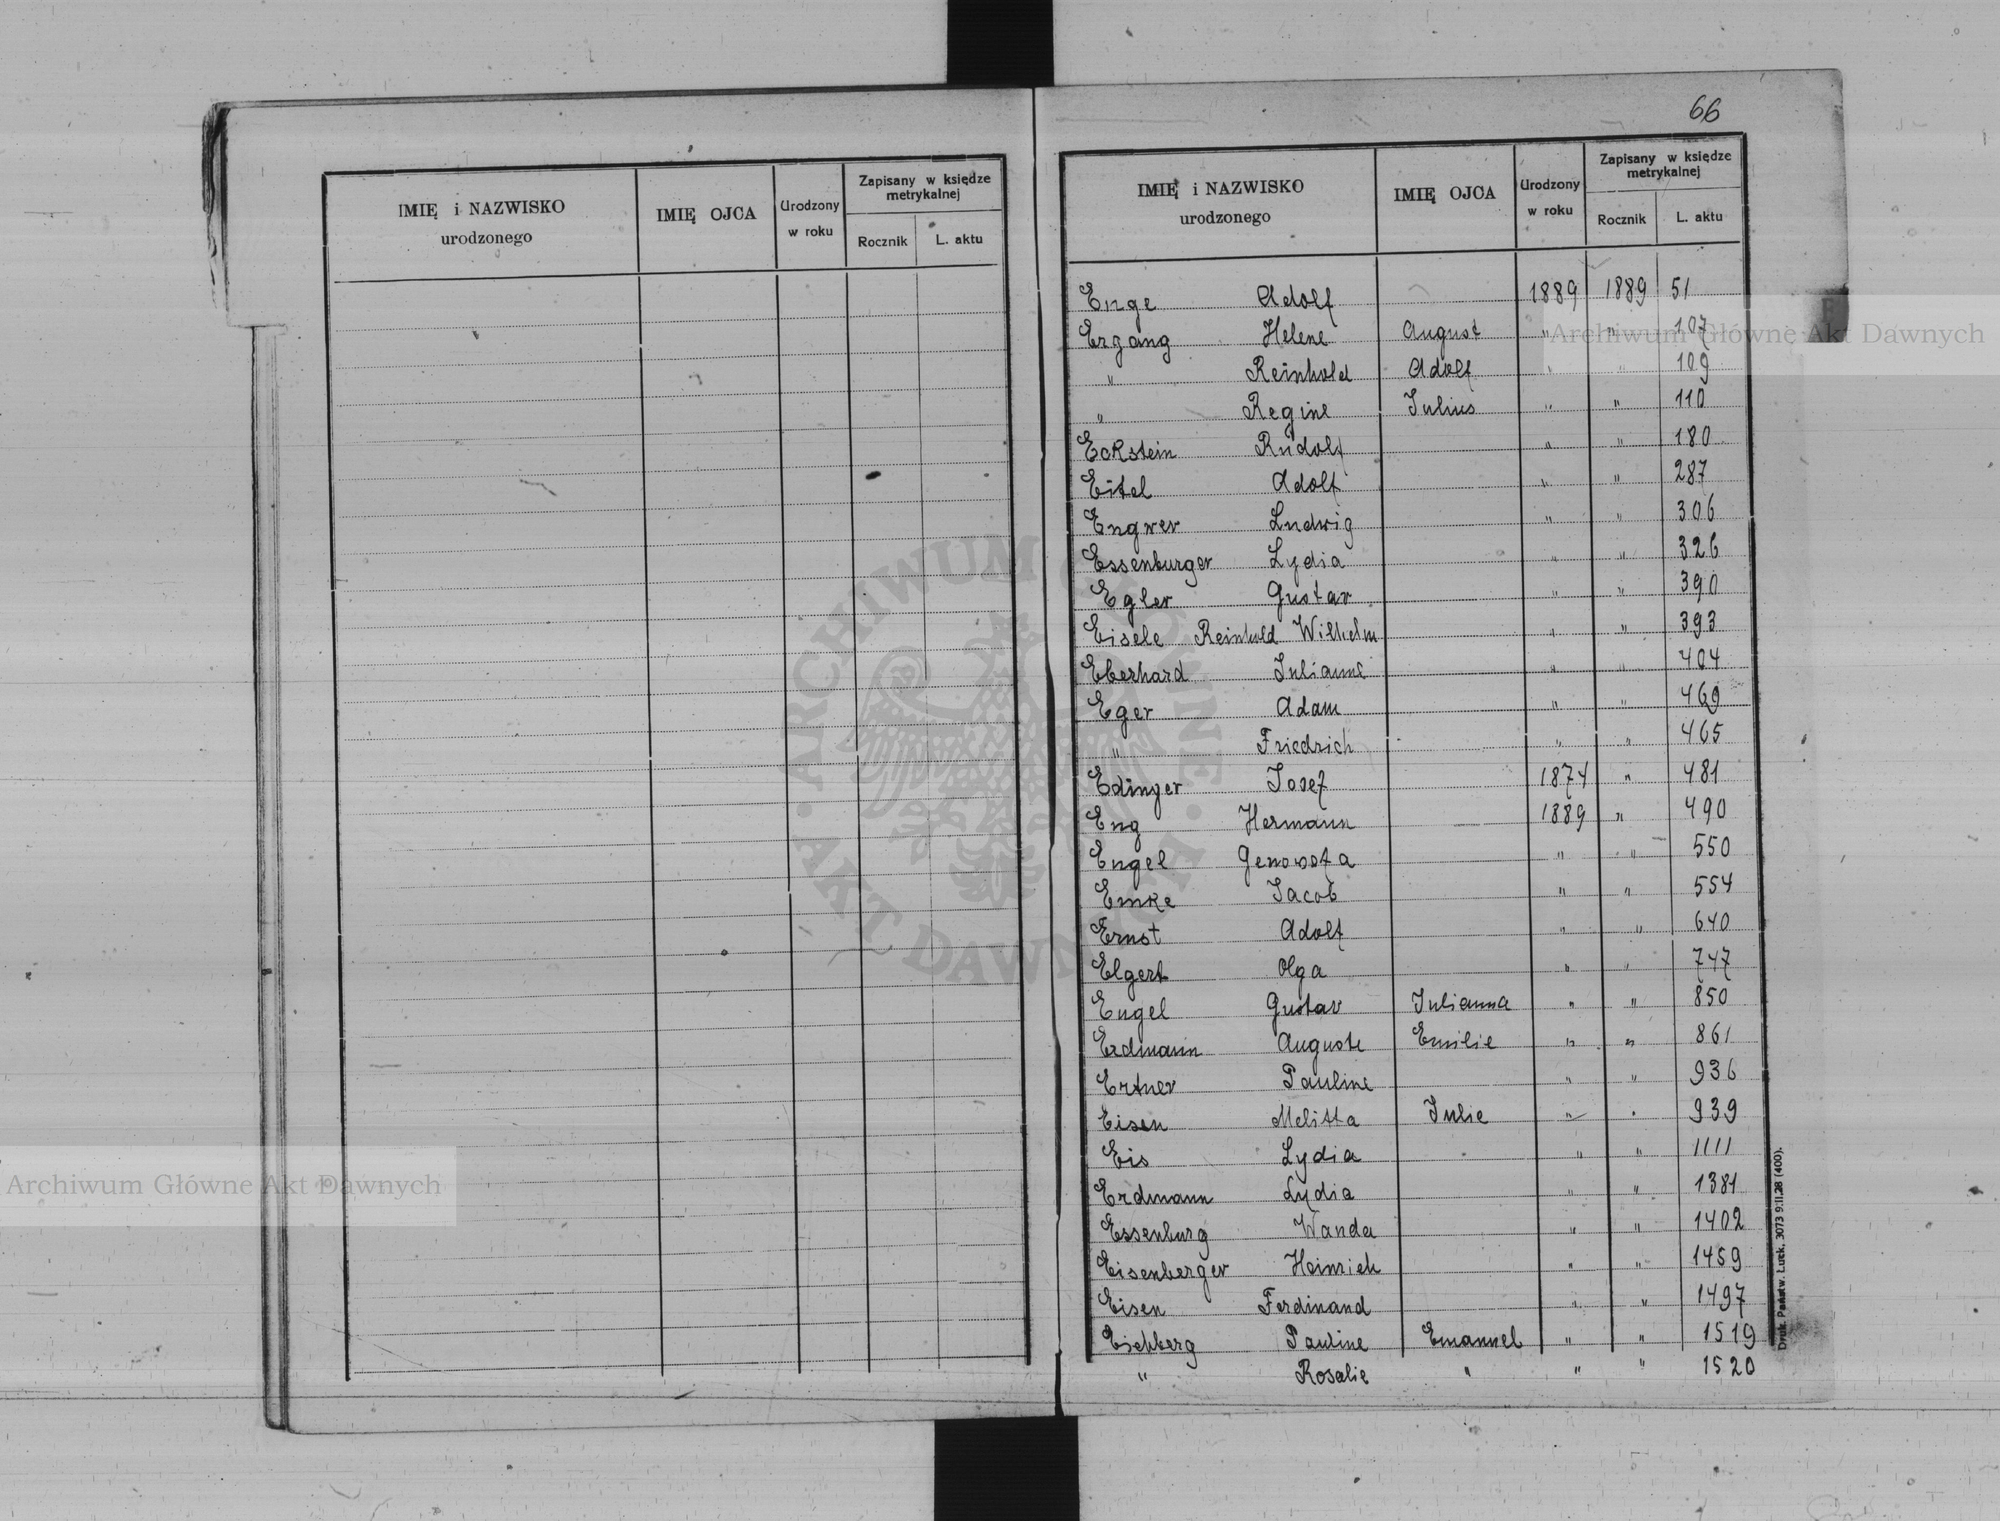 66
IMIĘ i NAZWISKO urodzonego IMIĘ OJCA Urodzony w roku Zapisany w księdze metrykalnej Rocznik L. aktu
IMIĘ i NAZWISKO urodzonego IMIĘ OJCA Urodzony w roku Zapisany w księdze metrykalnej Rocznik L. aktu
Enge Adolf 1889 1889 51
Ergang Helene August " " 107
" Reinhold Adolf " " 109
" Regine Julius " " 110
Eckstein Rudolf " " 180
Eitel Adolf " " 287
Engwer Ludwig " " 306
Essenburger Lydia " " 326
Egler Gustav " " 390
Eisele Reinhold Wilhelm " " 393
Eberhard Julianne " " 404
Eger Adam " " 469
" Friedrich " " 465
Edinger Josef 1874 " 481
Eng Hermann 1889 " 490
Engel Genowefa " " 550
Emke Jacob " " 554
Ernst Adolf " " 640
Elgert Olga " " 747
Engel Gustav Julianna " " 850
Erdmann Auguste Emilie " " 861
Ertner Pauline " " 936
Eisen Melitta Julie " " 939
Eis Lydia " " 1111
Erdmann Lydia " " 1381
Essenburg Wanda " " 1402
Eisenberger Heinrich " " 1459
Eisen Ferdinand " " 1497
Eichberg Pauline Emanuel " " 1519
" Rosalie " " " 1520
Druk. Państw. Łuck. 3073 9.II.28 (400).
Archiwum Główne Akt Dawnych
Archiwum Główne Akt Dawnych
ARCHIWUM GŁÓWNE AKT DAWNYCH